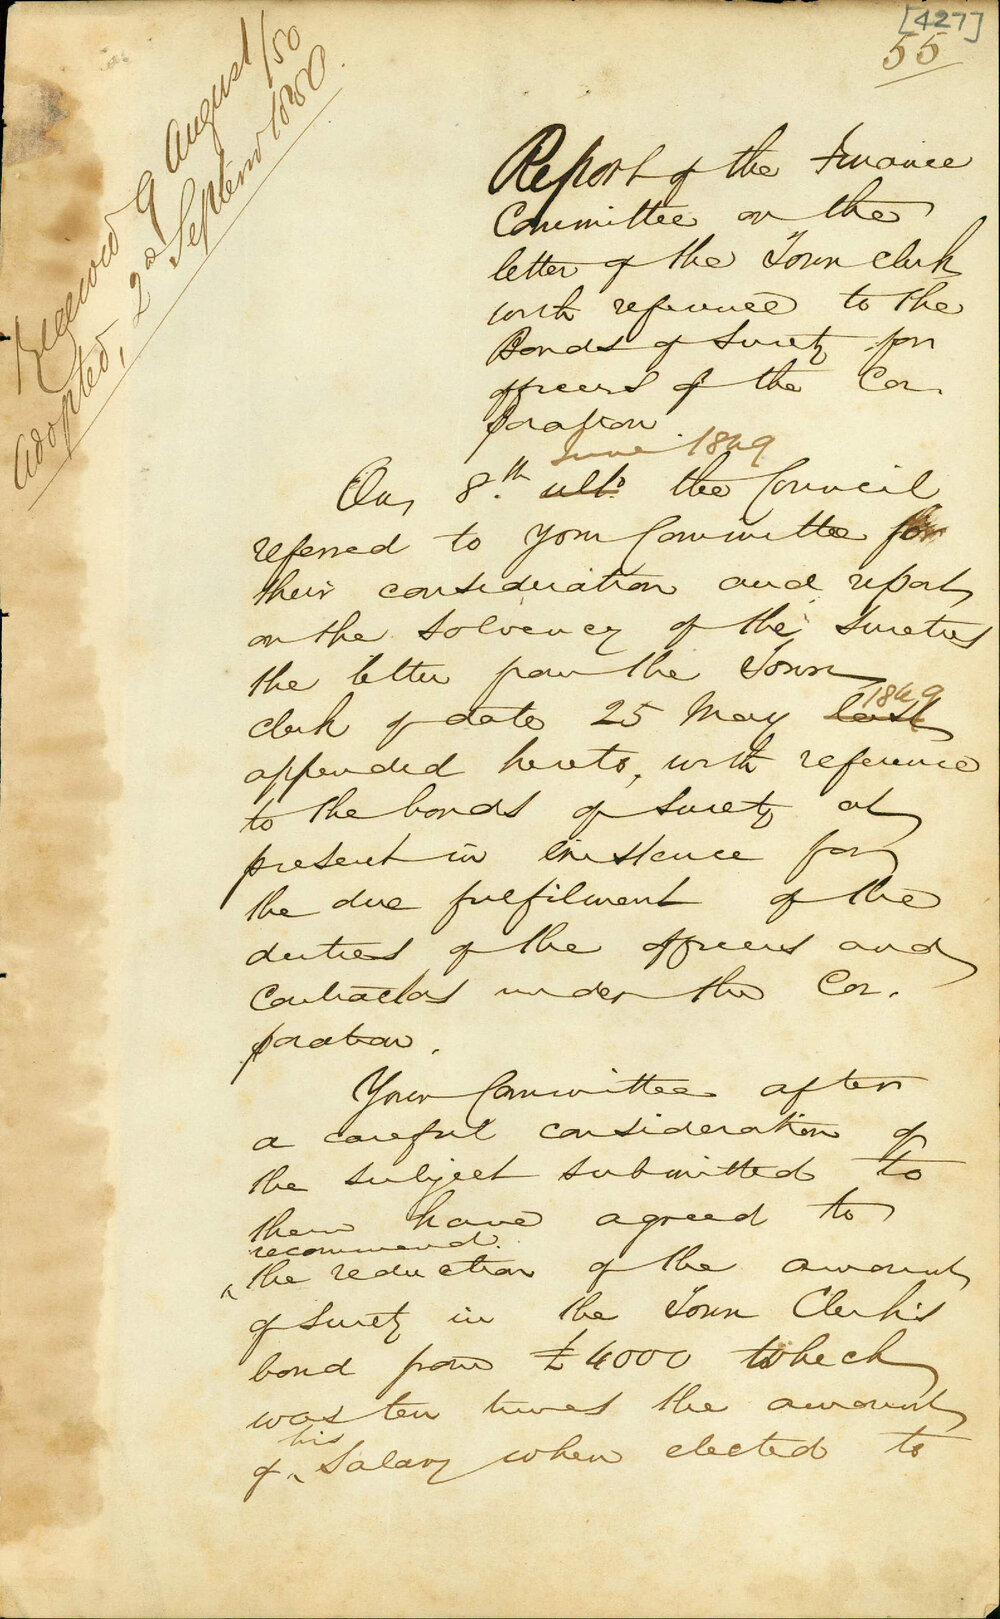 [427]
55
Received 9 August/50
Adopted, 2nd Septem 1850.
Report of the Finance
Committee on the
letter of the Town Clerk
with reference to the
Bonds of Surety for
officers of the Cor.
poration.
June 1849
On, 8.th ulto the Council
referred to your Committee for
their consideration and report
on the solvency of the Sureties
the letter from the Town
1849
clerk of date 25 May last
appended hereto, with reference
to the bonds of Surety at
present in existence for
the due fulfilment of the
duties of the officers and
Contractors under the Cor.
poration.
Your Committee after
a careful consideration of
the subject submitted to
them have agreed to
recommend.
the reduction of the amount
of Surety in the Town Clerk's
bond from £4000 which
was ten times the amount
his
of Salary when elected to